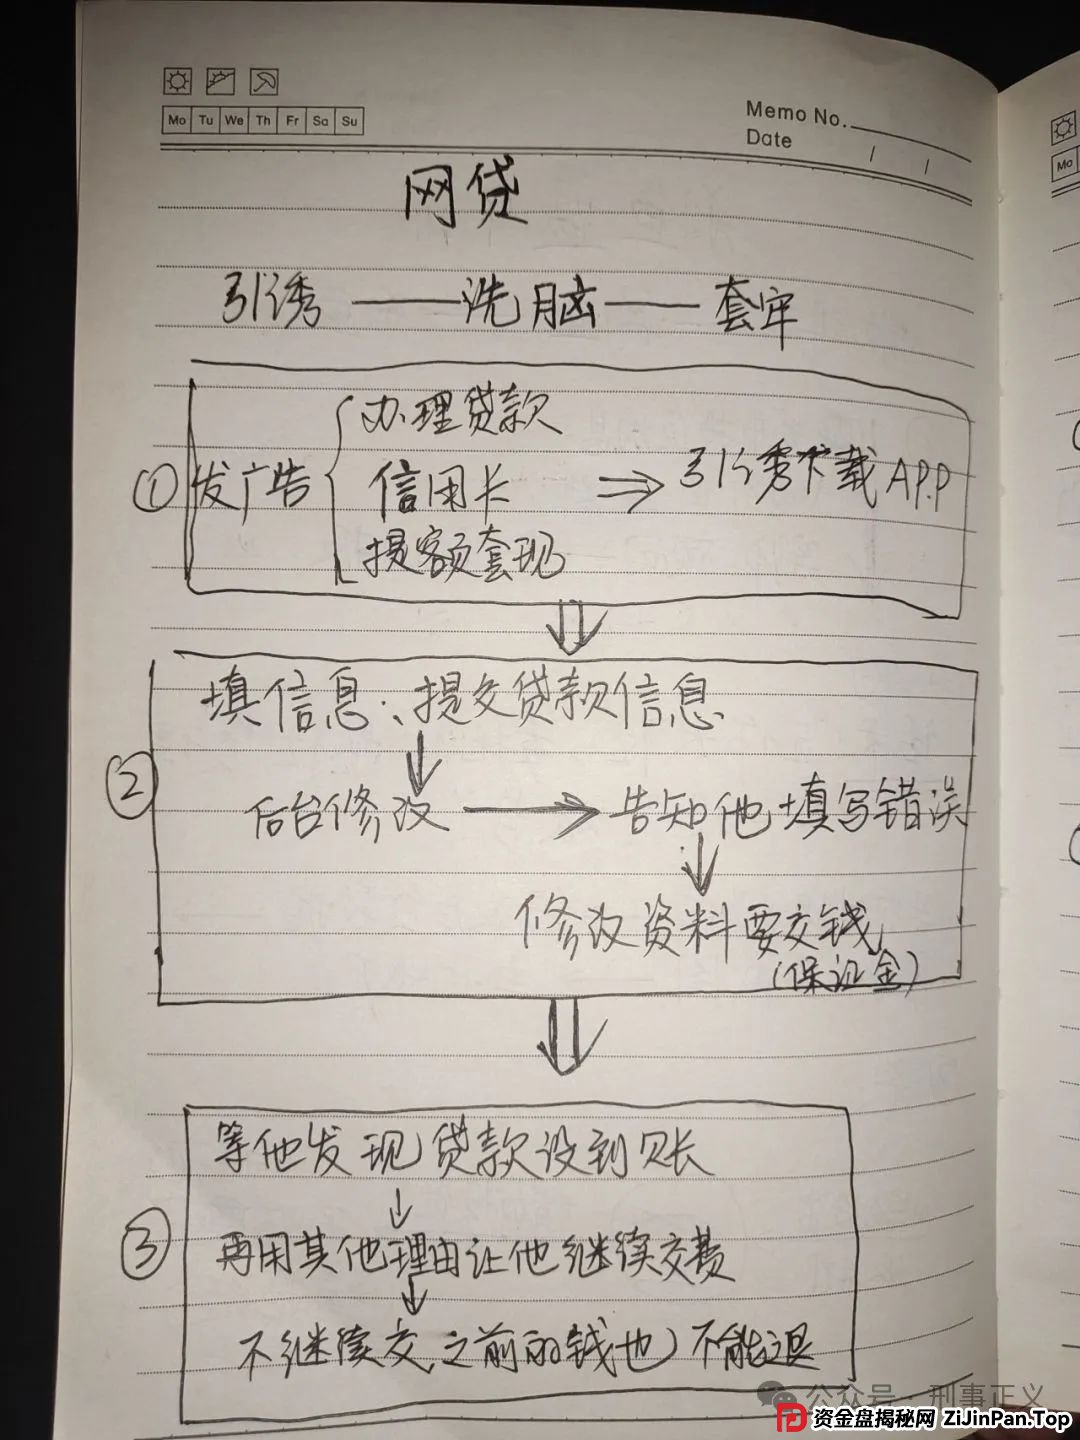 Mo Tu We Th Fr Sa Su
Memo No.
Date / /
Mo
网贷
引诱 —— 洗脑 —— 套牢
① 发广告
办理贷款
信用卡
提额套现
⇒ 引诱下载APP
②
填信息、提交贷款信息
后台修改 → 告知他填写错误
修改资料要交钱
(保证金)
③
等他发现贷款没到账
再用其他理由让他继续交费
不继续交,之前的钱也不能退
公众号·刑事正义
资金盘揭秘网 ZiJinPan.Top